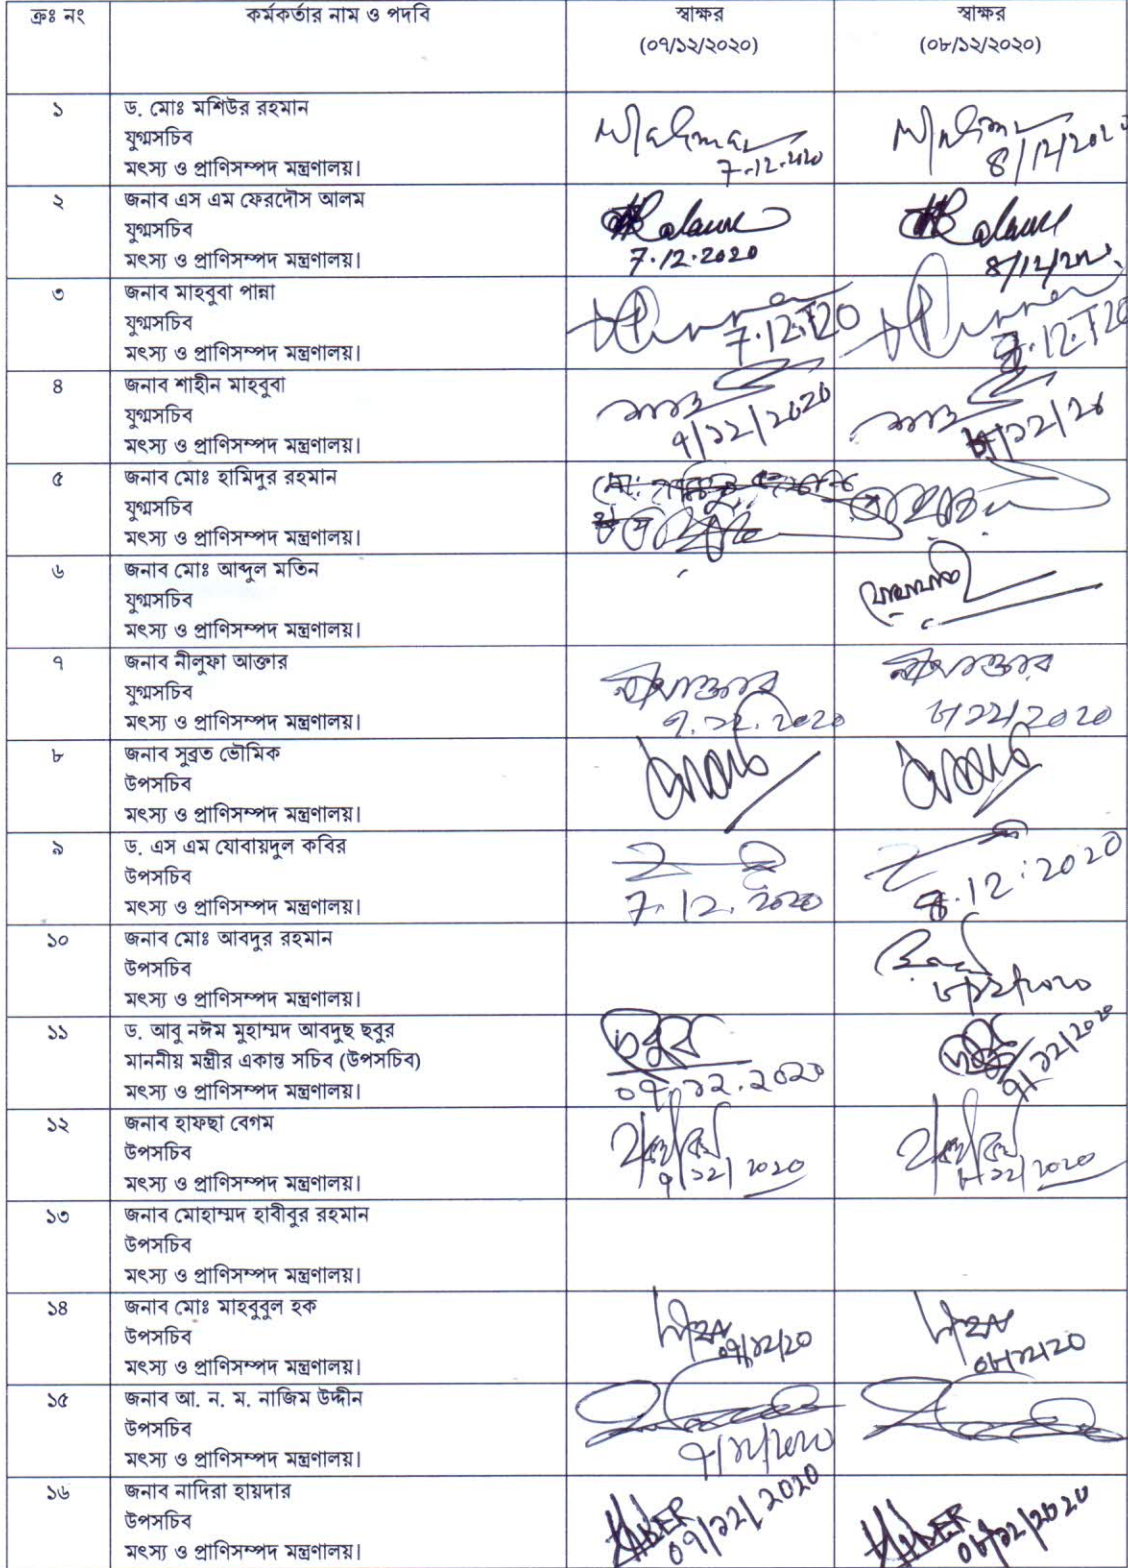 ক্রঃ নং কর্মকর্তার নাম ও পদবি স্বাক্ষর স্বাক্ষর
(০৭/১২/২০২০) (০৮/১২/২০২০)
১ ড. মোঃ মশিউর রহমান
যুগ্মসচিব
মৎস্য ও প্রাণিসম্পদ মন্ত্রণালয়।
7.12.2020 8/12/2020
২ জনাব এস এম ফেরদৌস আলম
যুগ্মসচিব
মৎস্য ও প্রাণিসম্পদ মন্ত্রণালয়।
7.12.2020
৩ জনাব মাহবুবা পান্না
যুগ্মসচিব
মৎস্য ও প্রাণিসম্পদ মন্ত্রণালয়।
৪ জনাব শাহীন মাহবুবা
যুগ্মসচিব
মৎস্য ও প্রাণিসম্পদ মন্ত্রণালয়।
৭/১২/২০২০
৫ জনাব মোঃ হামিদুর রহমান
যুগ্মসচিব
মৎস্য ও প্রাণিসম্পদ মন্ত্রণালয়।
৬ জনাব মোঃ আব্দুল মতিন
যুগ্মসচিব
মৎস্য ও প্রাণিসম্পদ মন্ত্রণালয়।
৭ জনাব নীলুফা আক্তার
যুগ্মসচিব
মৎস্য ও প্রাণিসম্পদ মন্ত্রণালয়।
৭.১২.২০২০ ৮/১২/২০২০
৮ জনাব সুব্রত ভৌমিক
উপসচিব
মৎস্য ও প্রাণিসম্পদ মন্ত্রণালয়।
৯ ড. এস এম যোবায়দুল কবির
উপসচিব
মৎস্য ও প্রাণিসম্পদ মন্ত্রণালয়।
7.12.2020 8.12.2020
১০ জনাব মোঃ আবদুর রহমান
উপসচিব
মৎস্য ও প্রাণিসম্পদ মন্ত্রণালয়।
৮/১২/২০২০
১১ ড. আবু নঈম মুহাম্মদ আবদুছ ছবুর
মাননীয় মন্ত্রীর একান্ত সচিব (উপসচিব)
মৎস্য ও প্রাণিসম্পদ মন্ত্রণালয়।
০৭.১২.২০২০
১২ জনাব হাফছা বেগম
উপসচিব
মৎস্য ও প্রাণিসম্পদ মন্ত্রণালয়।
৭/১২/২০২০ ৮/১২/২০২০
১৩ জনাব মোহাম্মদ হাবীবুর রহমান
উপসচিব
মৎস্য ও প্রাণিসম্পদ মন্ত্রণালয়।
১৪ জনাব মোঃ মাহবুবুল হক
উপসচিব
মৎস্য ও প্রাণিসম্পদ মন্ত্রণালয়।
০৭/১২/২০ ০৮/১২/২০
১৫ জনাব আ. ন. ম. নাজিম উদ্দীন
উপসচিব
মৎস্য ও প্রাণিসম্পদ মন্ত্রণালয়।
৭/১২/২০২০
১৬ জনাব নাদিরা হায়দার
উপসচিব
মৎস্য ও প্রাণিসম্পদ মন্ত্রণালয়।
০৭/১২/২০২০ ০৮/১২/২০২০